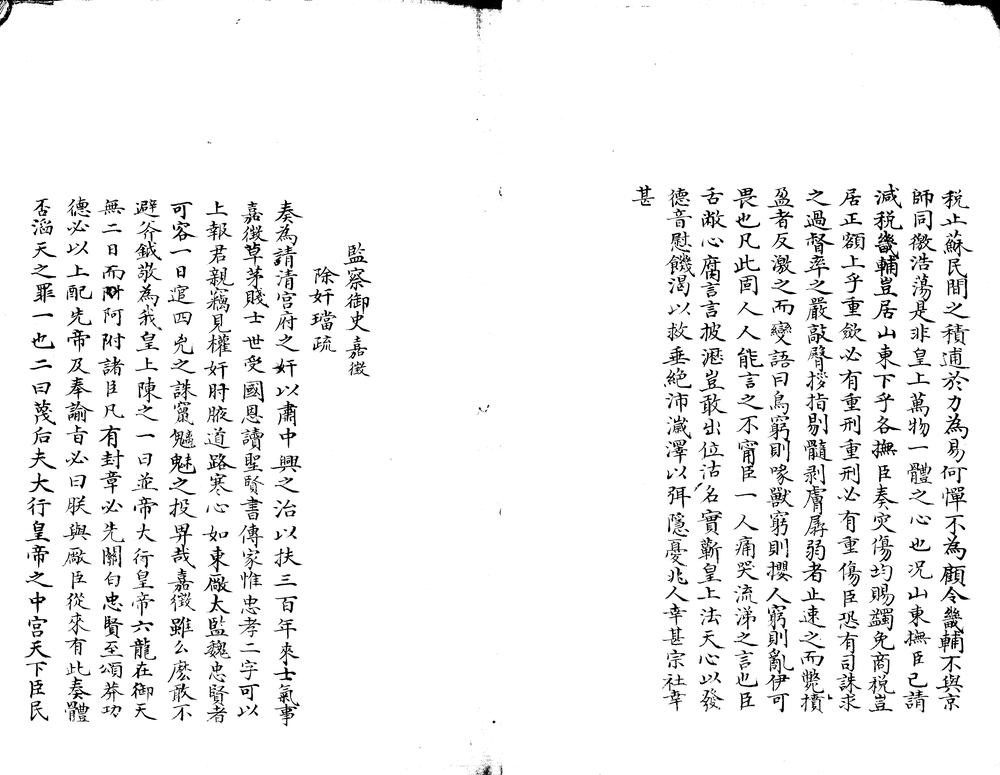 税止蘇民間之積逋於力為易何憚不為顧令畿輔不與京
師同徼浩蕩是非皇上萬物一體之心也况山東撫臣已請
減税畿輔豈居山東下乎各撫臣奏灾傷均賜蠲免商税豈
居正額上乎重歛必有重刑重刑必有重傷臣恐有司誅求
之過督率之嚴敲臀拶指剔髓剥膚孱弱者止速之而斃擯
盈者反激之而變語曰鳥窮則喙獸窮則攖人窮則亂伊可
畏也凡此固人人能言之不甯臣一人痛哭流涕之言也臣
舌敝心腐言言披瀝豈敢出位沽名實蘄皇上法天心以發
德音慰饑渴以救垂絶沛瀛澤以弭隱憂兆人幸甚宗社幸
甚
監察御史嘉徵
除奸璫疏
奏為請清宫府之奸以肅中興之治以扶三百年來士氣事
嘉徵草茅賤士世受國恩讀聖賢書傳家惟忠孝二字可以
上報君親竊見權奸肘腋道路寒心如東廠太監魏忠賢者
可容一日逭四兇之誅竄魑魅之投畀哉嘉徵雖么麽敢不
避斧鉞敬為我皇上陳之一曰並帝大行皇帝六龍在御天
無二日而阿附諸臣凡有封章必先關白忠賢至頌莽功
德必以上配先帝及奉諭旨必曰朕與厰臣從來有此奏體
否滔天之罪一也二曰蔑后夫大行皇帝之中宫天下臣民